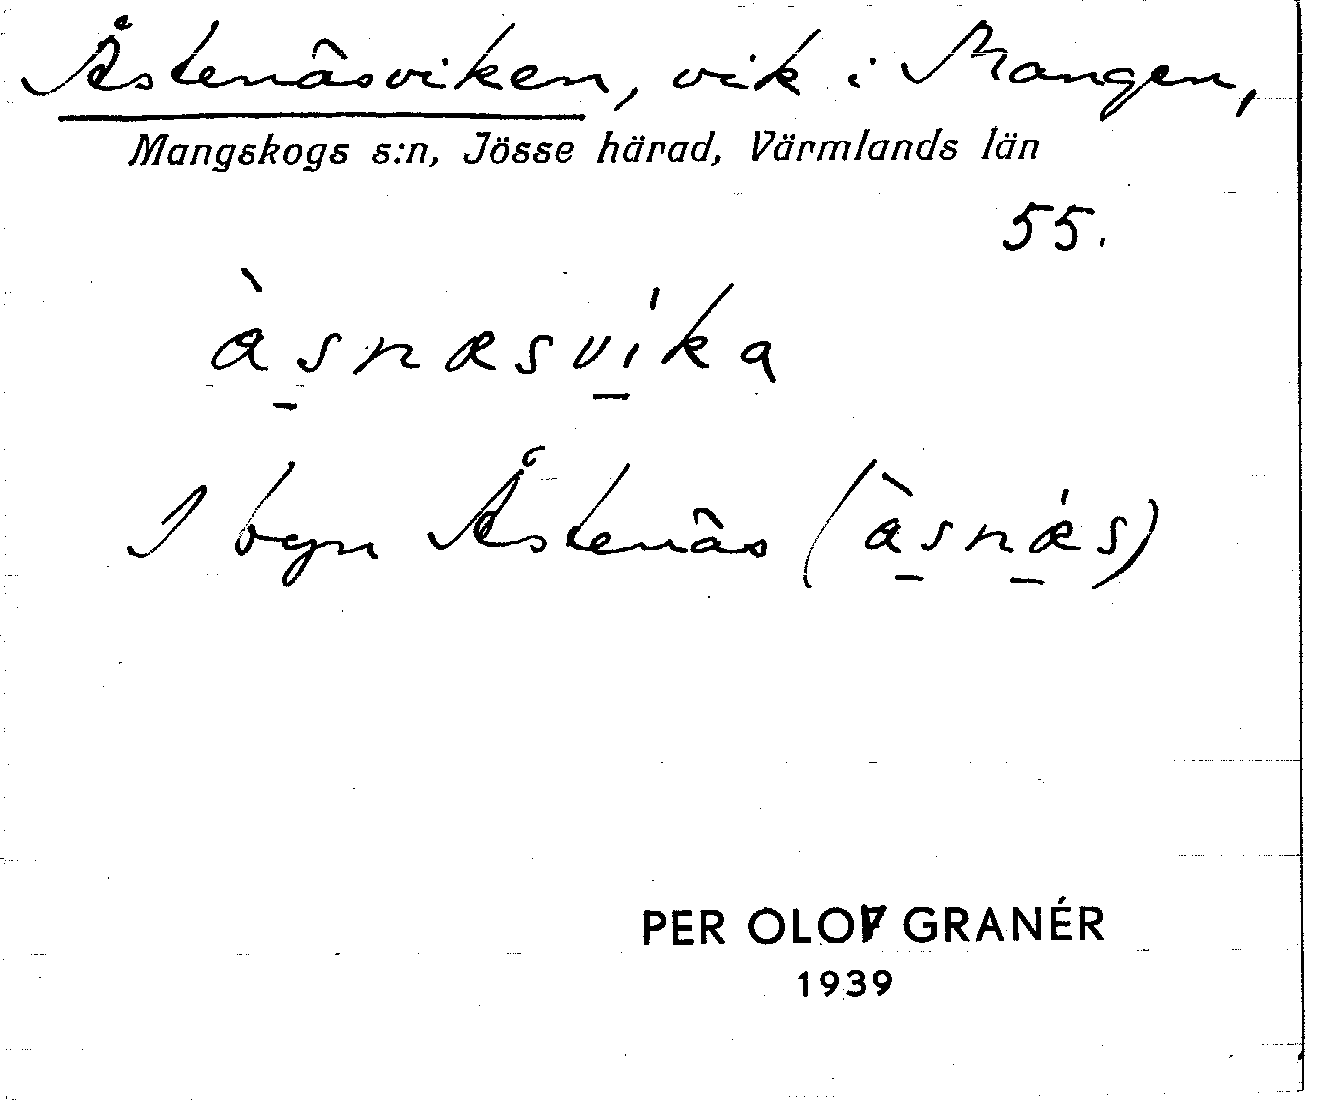 Åstenäsviken, vik i Mangen,
Mangskogs s:n, Jösse härad, Värmlands län
55.
àsnæsvíka
I byn Åstenäs (àsnǽs)
PER OLOF GRANÉR
1939